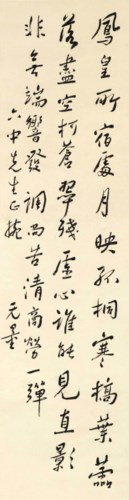 鳳皇所宿處月映孤桐寒槁葉零
落盡空柯蒼翠殘虛心誰能見直影
非無端響發調尚苦清商勞一彈
六中先生正捥
元量